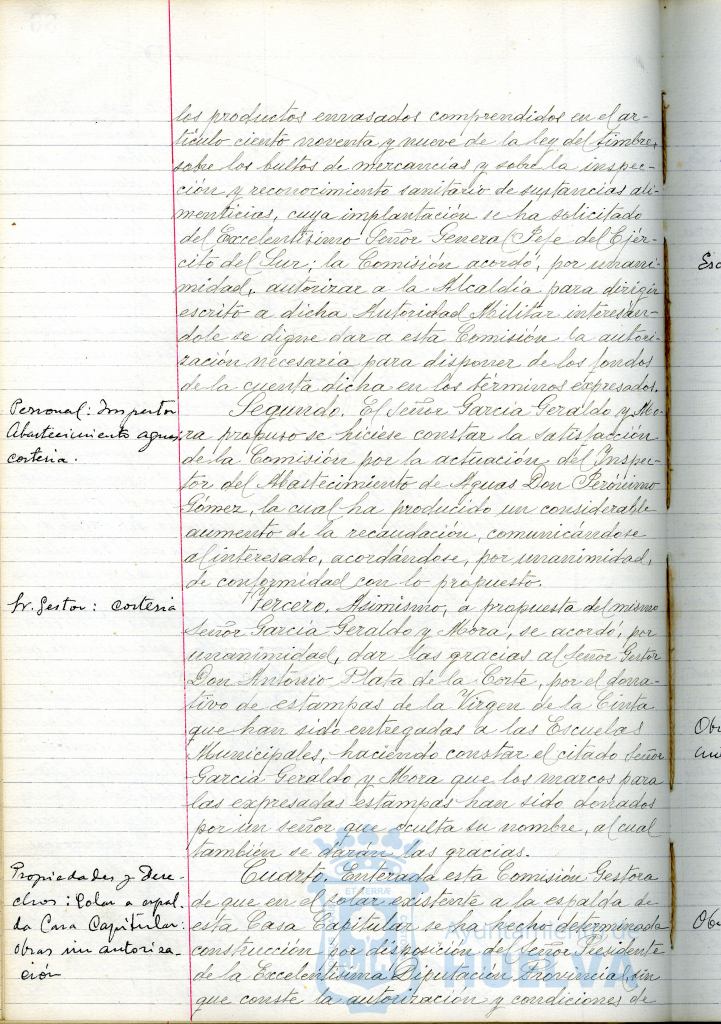 los productos envasados comprendidos en el ar-
tículo ciento noventa y nueve de la ley del timbre,
sobre los bultos de mercancías y sobre la inspec-
ción y reconocimiento sanitario de sustancias ali-
menticias, cuya implantación se ha solicitado
del Excelentísimo Señor General Jefe del Ejér-
cito del Sur; la Comisión acordó, por unani-
midad, autorizar a la Alcaldía para dirigir
escrito a dicha Autoridad Militar interesán-
dole se digne dar a esta Comisión la autori-
zación necesaria para disponer de los fondos
de la cuenta dicha en los términos expresados.
Personal: Inspector
Abastecimiento aguas,
cortesia.
Segundo. El Señor García Geraldo y Mo-
ra propuso se hiciese constar la satisfacción
de la Comisión por la actuación del Inspec-
tor del Abastecimiento de Aguas Don Jerónimo
Gómez, la cual ha producido un considerable
aumento de la recaudación, comunicándose
al interesado, acordándose, por unanimidad,
de conformidad con lo propuesto.
Sr. Gestor: cortesia
Tercero. Asimismo, a propuesta del mismo
Señor García Geraldo y Mora, se acordó, por
unanimidad, dar las gracias al Señor Gestor
Don Antonio Plata de la Corte, por el dona-
tivo de estampas de la Virgen de la Cinta
que han sido entregadas a las Escuelas
Municipales, haciendo constar el citado Señor
García Geraldo y Mora que los marcos para
las expresadas estampas han sido donados
por un señor que oculta su nombre, al cual
también se darán las gracias.
Propiedades y Dere-
chos: Solar a espal-
da Casa Capitular:
obras sin autoriza-
ción
Cuarto. Enterada esta Comisión Gestora
de que en el solar existente a la espalda de
esta Casa Capitular se ha hecho determinada
construcción por disposición del Señor Presidente
de la Excelentísima Diputación Provincial, sin
que conste la autorización y condiciones de
Ayuntamiento de
HUELVA